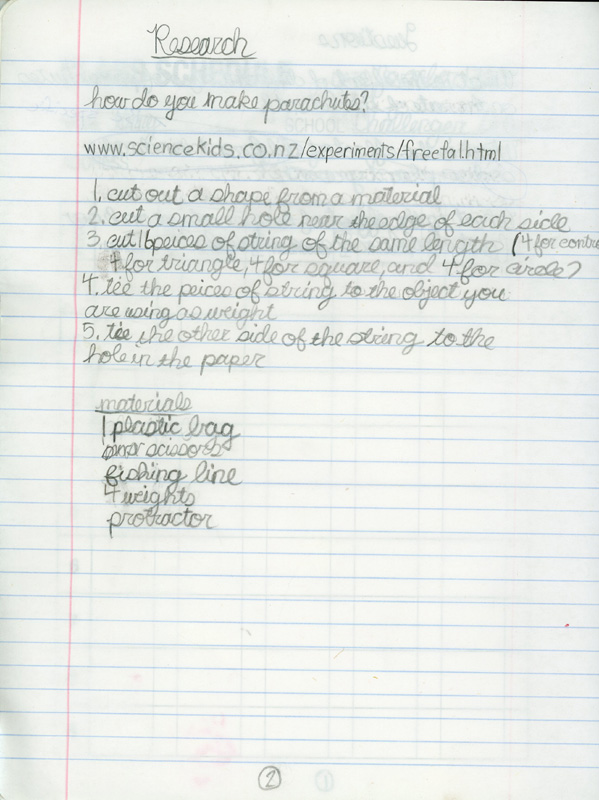 Research
how do you make parachutes?
www.sciencekids.co.nz/experiments/freefal.html
1. cut out a shape from a material
2. cut a small hole near the edge of each side
3. cut 16 peices of string of the same length (4 for contro
4 for triangle, 4 for square, and 4 for circle)
4. tie the peices of string to the object you
are using as weight
5. tie the other side of the string to the
hole in the paper
materials
1 plastic bag
scissors
fishing line
4 weights
protractor
2